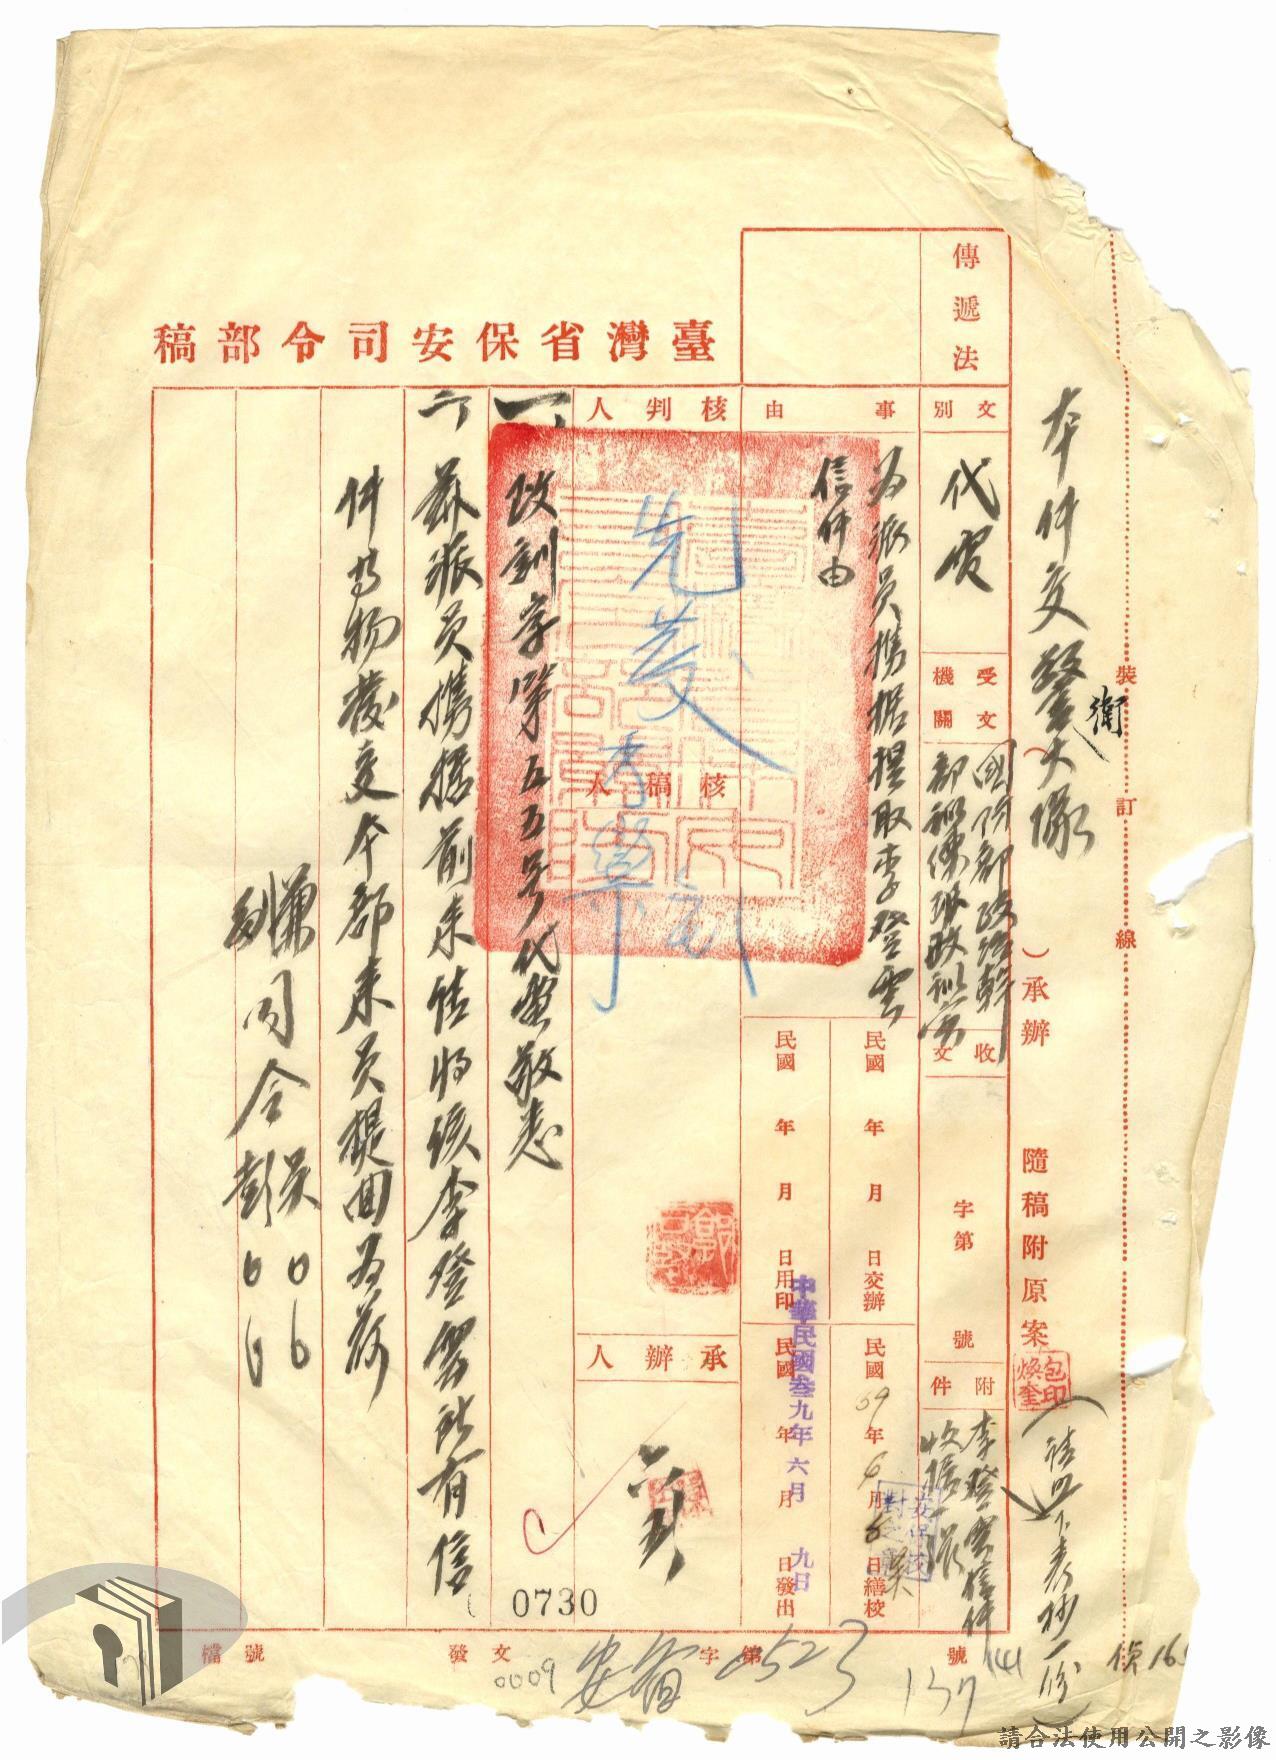 臺灣省保安司令部稿
裝訂線
本件交警衛大隊（）承辦
隨稿附原案
包煥奎印
（請照下表抄一份）
傳遞法
文別
代電
受文機關
國防部政治幹部訓練班政訓室
收文
字第
號
附件
李登雲信件收據一張
事由
為派員攜據提取李登雲信件由
民國 年 月 日交辦
民國 39年 6月 8日繕校
民國 年 月 日用印
民國 年 月 日發出
中華民國叁九年六月九日
核判人
先發
核稿人
承辦人
一、政訓字第五五號代電敬悉
二、茲派員攜據前來請將該李登雲所有信
件等物發交本部來員提回為荷
兼司令吳〇〇
副司令彭〇〇
0730
檔號
發文
字第
號
0009
2523
137
141
請合法使用公開之影像